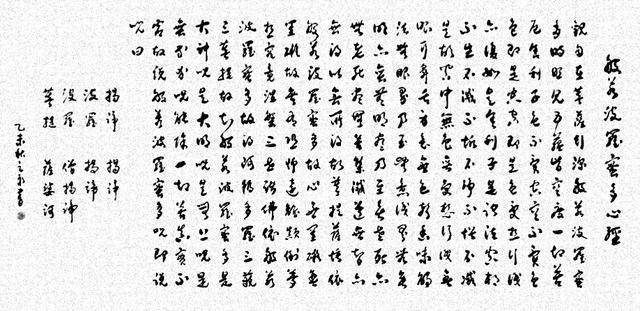 般若波羅蜜多心經
觀自在菩薩行深般若波羅蜜
多時照見五蘊皆空度一切苦
厄舍利子色不異空空不異色
色即是空空即是色受想行識
亦復如是舍利子是諸法空相
不生不滅不垢不淨不增不減
是故空中無色無受想行識無
眼耳鼻舌身意無色聲香味觸
法無眼界乃至無意識界無無
明亦無無明盡乃至無老死亦
無老死盡無苦集滅道無智亦
無得以無所得故菩提薩埵依
般若波羅蜜多故心無罣礙無
罣礙故無有恐怖遠離顛倒夢
想究竟涅槃三世諸佛依般若
波羅蜜多故得阿耨多羅三藐
三菩提故知般若波羅蜜多是
大神咒是大明咒是無上咒是
無等等咒能除一切苦真實不
虛故說般若波羅蜜多咒即說
咒曰
揭諦 揭諦
波羅 揭諦
波羅 僧揭諦
菩提 薩婆訶
乙未秋